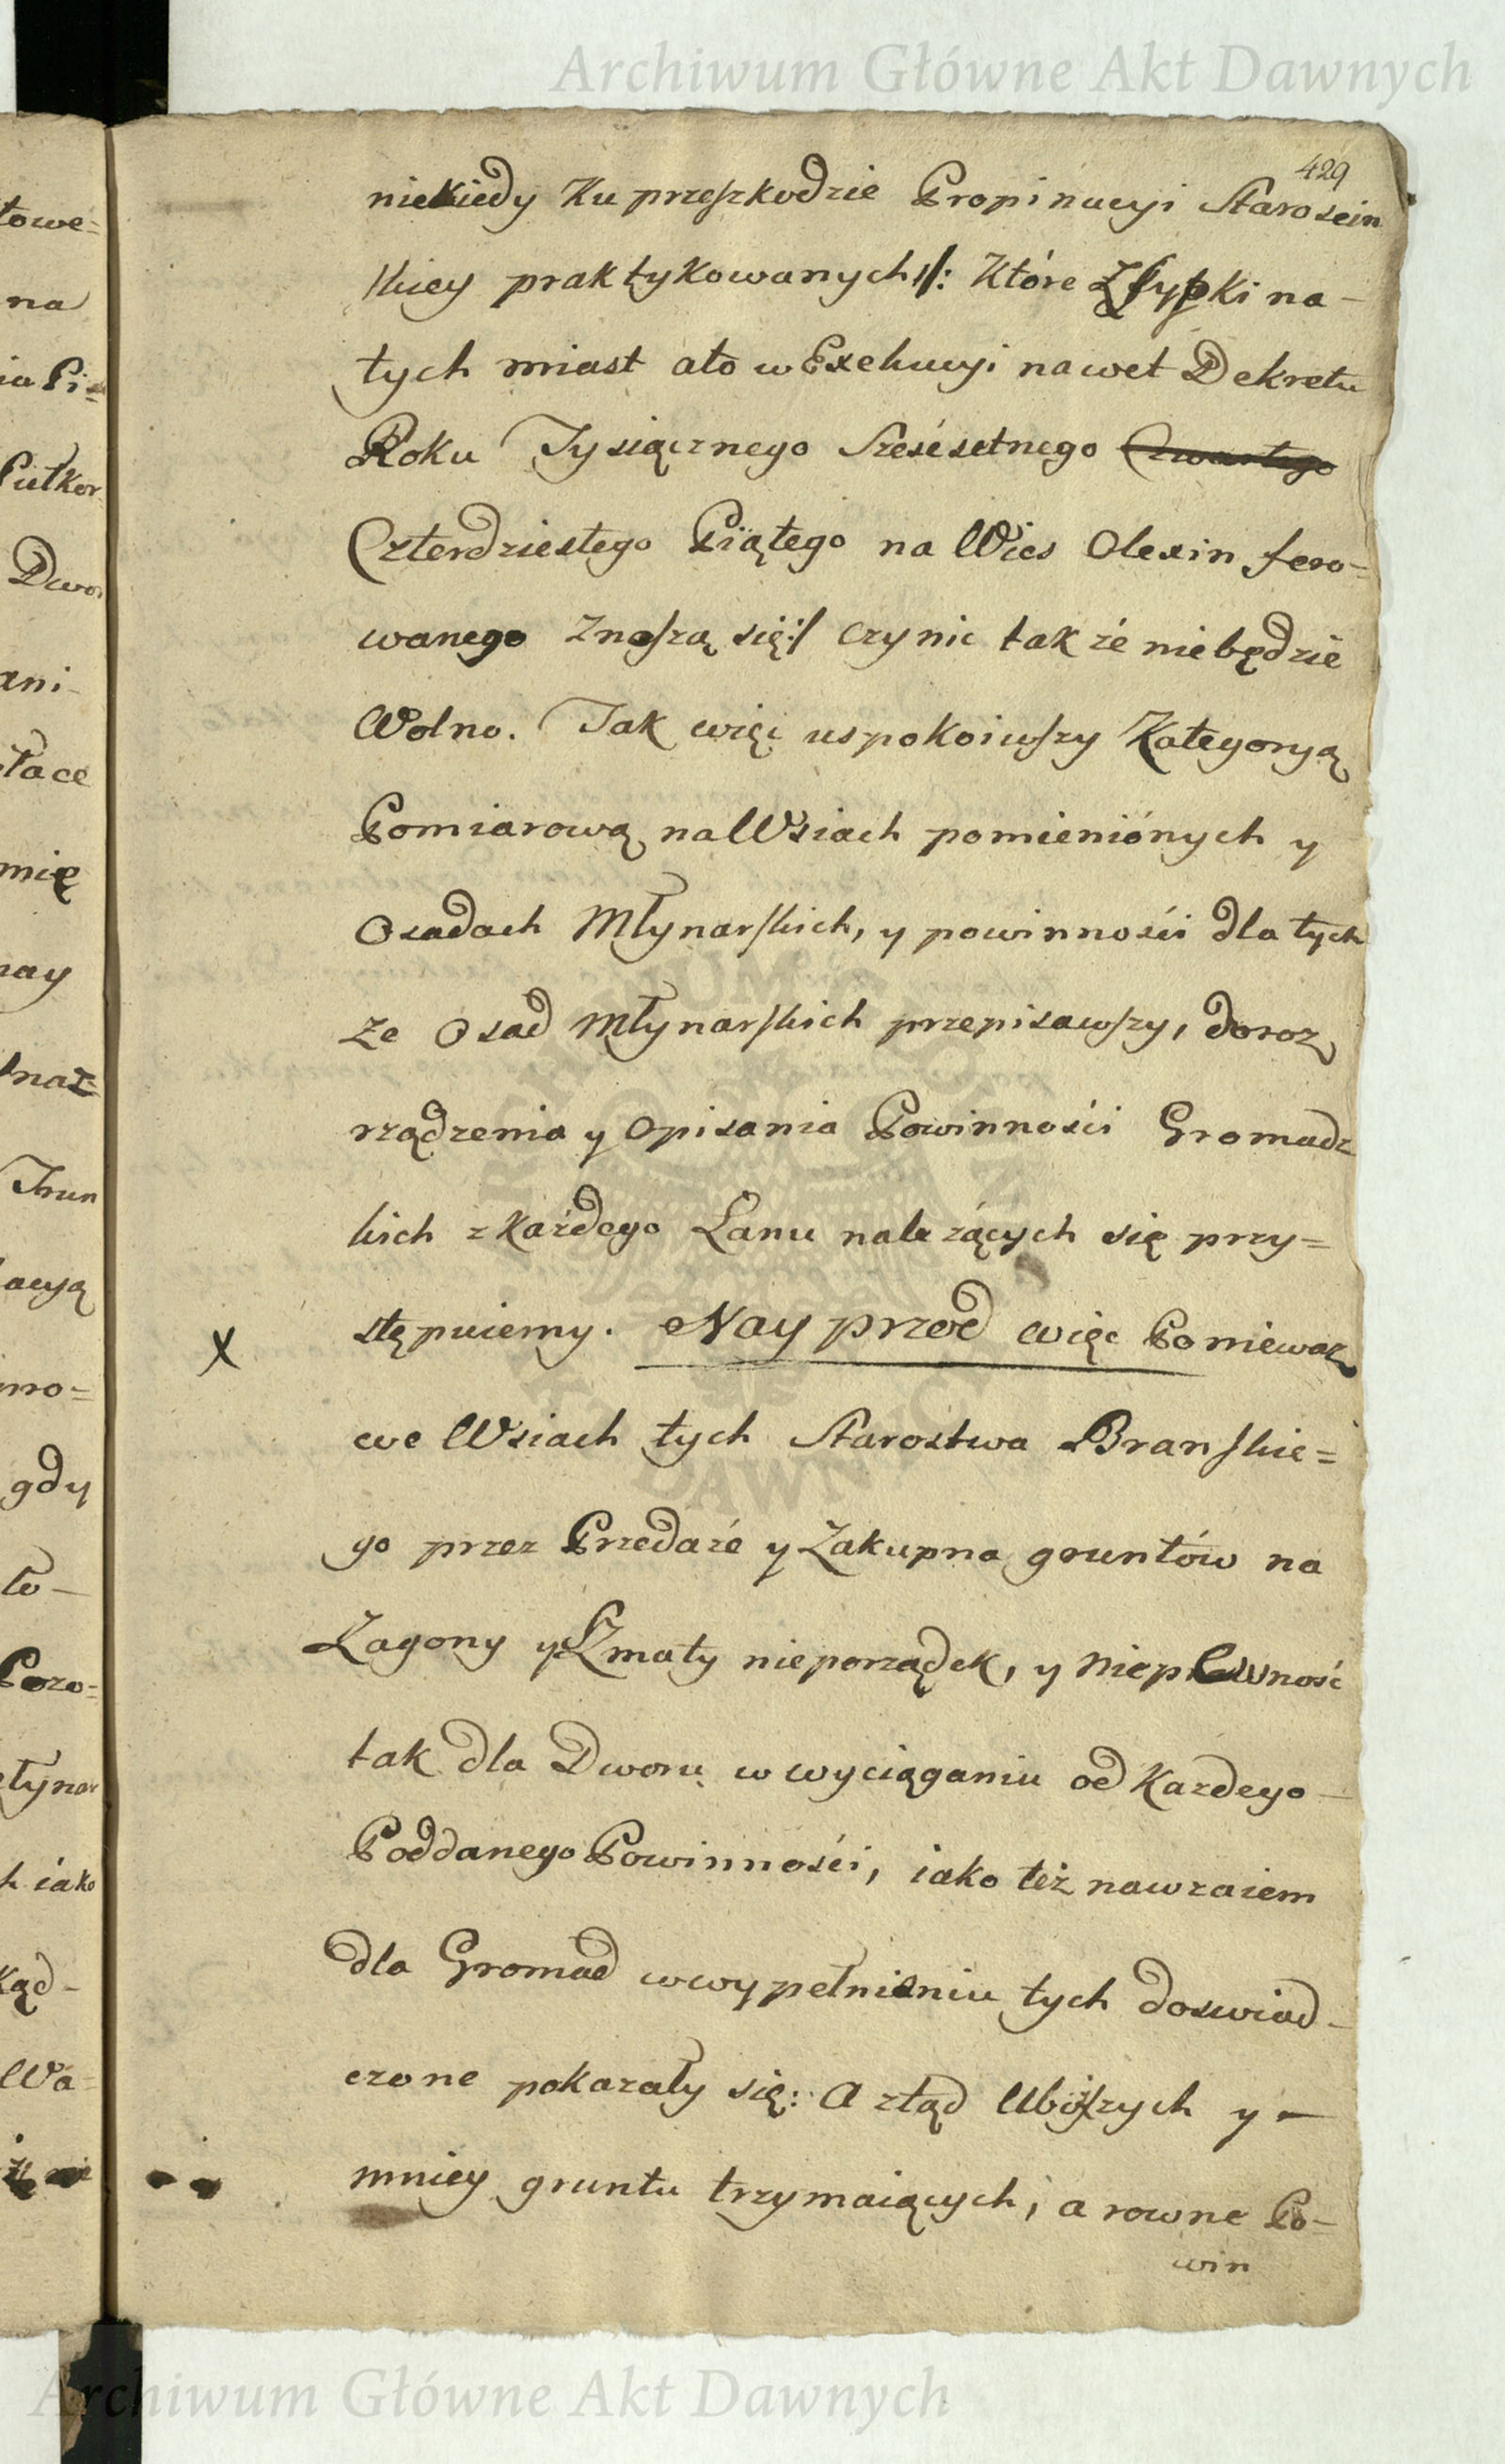 Archiwum Główne Akt Dawnych
429
niekiedy Ku przeszkodzie Propinacyi Starosein
skiey praktykowanych/: Które Zsypki na-
tych miast ato w Exekucyi nawet Dekretu
Roku Tysiącznego Sześćsetnego Czwartego
Czterdziestego Piątego na Wies Olexin fero=
wanego znoszą się:/ czynic także niebędzie
Wolno. Tak więc uspokoiwszy Kategoryą
Pomiarową na Wsiach pomieniónych y
Osadach Młynarskich, y powinnosći dla tych
ze Osad Młynarskich przepisawszy, doroz
rządzenia y Opisania Powinnosći Gromadz
kich z Każdego Łanu należących się przy=
X stępuiemy. Nay przod więc Poniewaz
we Wsiach tych Starostwa Branskie=
go przez Przedaże y Zakupna gruntów na
Zagony y Szmaty nieporządek, y niepewność
tak dla Dworu w wyciąganiu od Kazdego-
Poddanego Powinnosći, iako też nawzaiem
dla Gromad wwypełnieniu tych doswiad-
czone pokazały się: A ztąd Uboższych y -
mniey gruntu trzymaiących, a rowne Po-
win
towe=
na
ia Pi=
Pułkor
Dwor
ani-
łace
mię
nay
Trun
acyą
mo=
gdy
to-
Pozo=
łynar
h iako
Kąd-
Wa=
Archiwum Główne Akt Dawnych